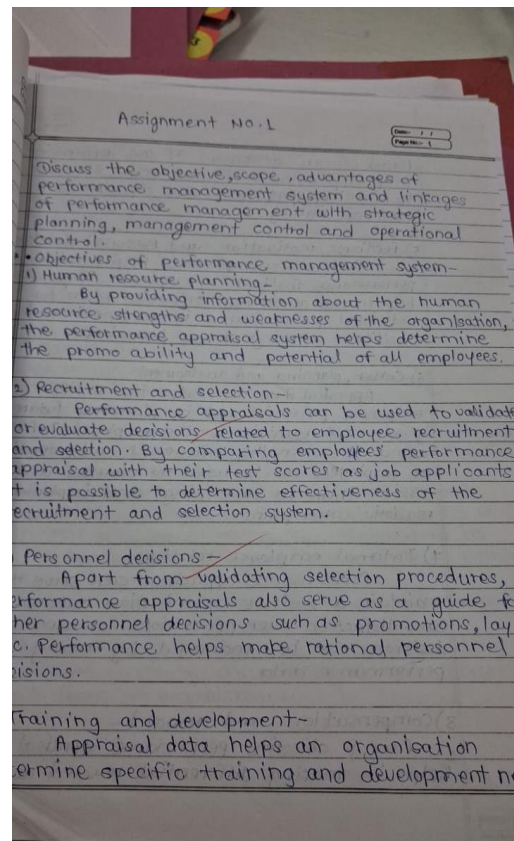 Assignment No.1
Date:- / /
Page No:- 1
Discuss the objective, scope, advantages of
performance management system and linkages
of performance management with strategic
planning, management control and operational
control.
• Objectives of performance management system-
1) Human resource planning-
By providing information about the human
resource strengths and weaknesses of the organisation,
the performance appraisal system helps determine
the promo ability and potential of all employees.
2) Recruitment and selection-
Performance appraisals can be used to validate
or evaluate decisions related to employee recruitment
and selection. By comparing employees' performance
appraisal with their test scores as job applicants
t is possible to determine effectiveness of the
ecruitment and selection system.
) Personnel decisions-
Apart from validating selection procedures,
erformance appraisals also serve as a guide fo
her personnel decisions such as promotions, lay
c. Performance helps make rational personnel
cisions.
Training and development-
Appraisal data helps an organisation
ermine specific training and development ne